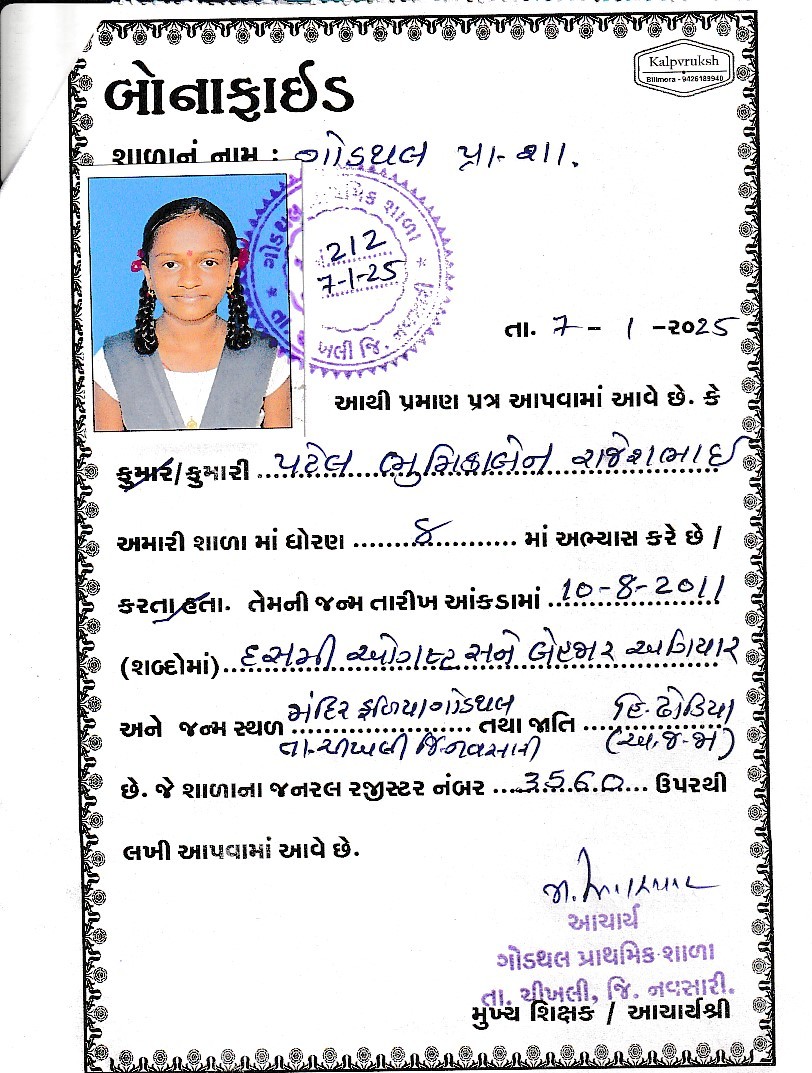 Kalpvruksh
Billimora - 9426189940
બોનાફાઈડ
શાળાનું નામ : ગોડથલ પ્રા-શા.
ગોડથલ પ્રાથમિક શાળા
212
7-1-25
તા. ચીખલી જિ. નવસારી
તા. 7 - 1 - ૨૦25
આથી પ્રમાણ પત્ર આપવામાં આવે છે. કે
કુમાર/કુમારી પટેલ ભુમિકાબેન રાજેશભાઈ
અમારી શાળા માં ધોરણ ૪ માં અભ્યાસ કરે છે /
કરતા હતા. તેમની જન્મ તારીખ આંકડામાં 10-8-2011
(શબ્દોમાં) દસમી ઓગષ્ટ સને બેહજાર અગિયાર
અને જન્મ સ્થળ મંદિર ફળિયા ગોડથલ તથા જાતિ હિ. ઢોડિયા
તા-ચીખલી જિ-નવસારી (અ.જ.જા)
છે. જે શાળાના જનરલ રજીસ્ટર નંબર 3560 ઉપરથી
લખી આપવામાં આવે છે.
આચાર્ય
ગોડથલ પ્રાથમિક શાળા
તા. ચીખલી, જિ. નવસારી.
મુખ્ય શિક્ષક / આચાર્યશ્રી